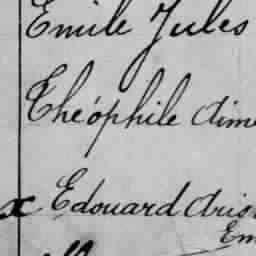 Emile Jules
Théophile Aimé
x Edouard Aris
Em